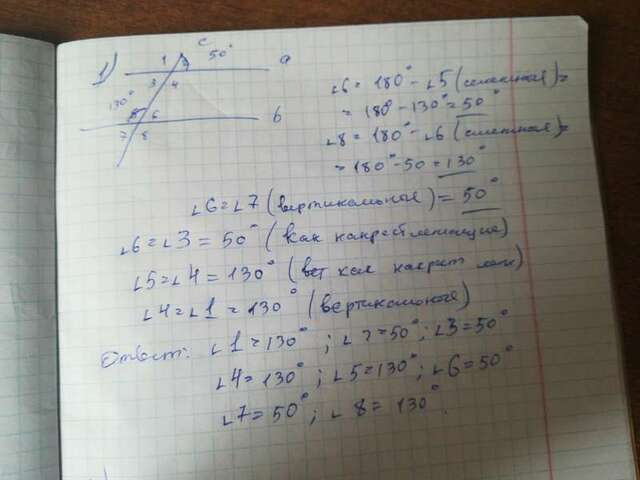 1)
c
1 2 50° a
3 4
130°
5 6 b
7 8
∠6 = 180° - ∠5 (смежная) =
= 180° - 130° = 50°
∠8 = 180° - ∠6 (смежная) =
= 180° - 50 = 130°
∠6 = ∠7 (вертикальные) = 50°
∠6 = ∠3 = 50° (как накрест лежащие)
∠5 = ∠4 = 130° (как накрест леж)
∠4 = ∠1 = 130° (вертикальные)
Ответ: ∠1 = 130° ; ∠2 = 50° ; ∠3 = 50°
∠4 = 130° ; ∠5 = 130° ; ∠6 = 50°
∠7 = 50° ; ∠8 = 130°.